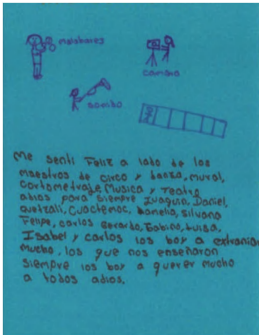 malabares
camara
sonido
Me senti Feliz a lado de los
maestros de circo y danza, mural,
cortometraje, Musica y Teatro
adios para siempre Juaquin, Daniel,
Cuactemoc, Pamela, Silvana
Felipe, carlos Gerardo, Sabino, Luisa,
Isabel y carlos los boy a extraniar
mucho, los que nos enseñaron
siempre los boy a querer mucho
a todos adios.